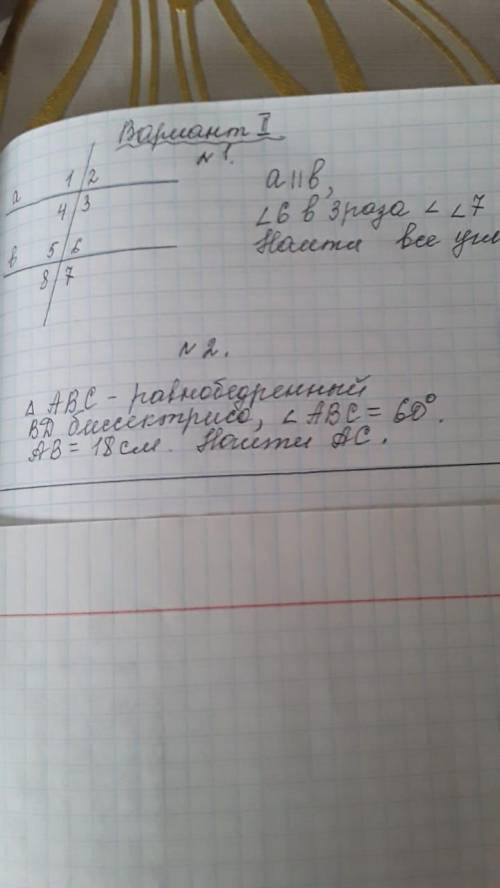 Вариант II
№ 1.
a 1 2
4 3
в 5 6
8 7
a || в,
∠6 в 3 раза < ∠7
Найти все угл
№ 2.
△ ABC - равнобедренный
BD биссектриса, ∠ ABC = 60°.
AB = 18 см. Найти AC.